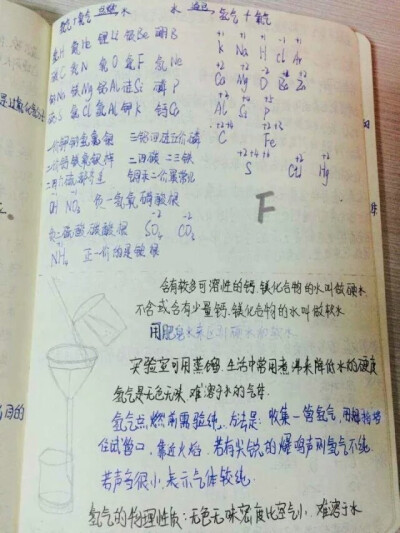 氢气+氧气 点燃 水 水 通电 氢气+氧气
氢H 氦He 锂Li 铍Be 硼B
碳C 氮N 氧O 氟F 氖Ne
钠Na 镁Mg 铝Al 硅Si 磷P
硫S 氯Cl 氩Ar 钾K 钙Ca
+1 +1 +1 -1 +1
K Na H Cl Ag
+2 +2 -2 +2 +2
Ca Mg O Ba Zn
Al Si P
C Fe
S Cu Hg
一价钾钠氯氢银
二价氧钙钡镁锌
三铝四硅五价磷
二四碳 二三铁
二四六硫都齐全
铜汞二价最常见
OH NO₃ 负一氢氧硝酸根
负二硫酸碳酸根 SO₄ CO₃
NH₄ 正一价的是铵根
F
含有较多可溶性的钙、镁化合物的水叫做硬水
不含或含有少量钙、镁化合物的水叫做软水
用肥皂水来区别硬水和软水
实验室可用蒸馏、生活中常用煮沸来降低水的硬度
氢气是无色无味、难溶于水的气体.
氢气点燃前需验纯、方法是:收集一管氢气,用拇指堵
住试管口,靠近火焰.若有尖锐的爆鸣声则氢气不纯.
若声音很小,表示气体较纯.
氢气的物理性质:无色无味密度比空气小、难溶于水